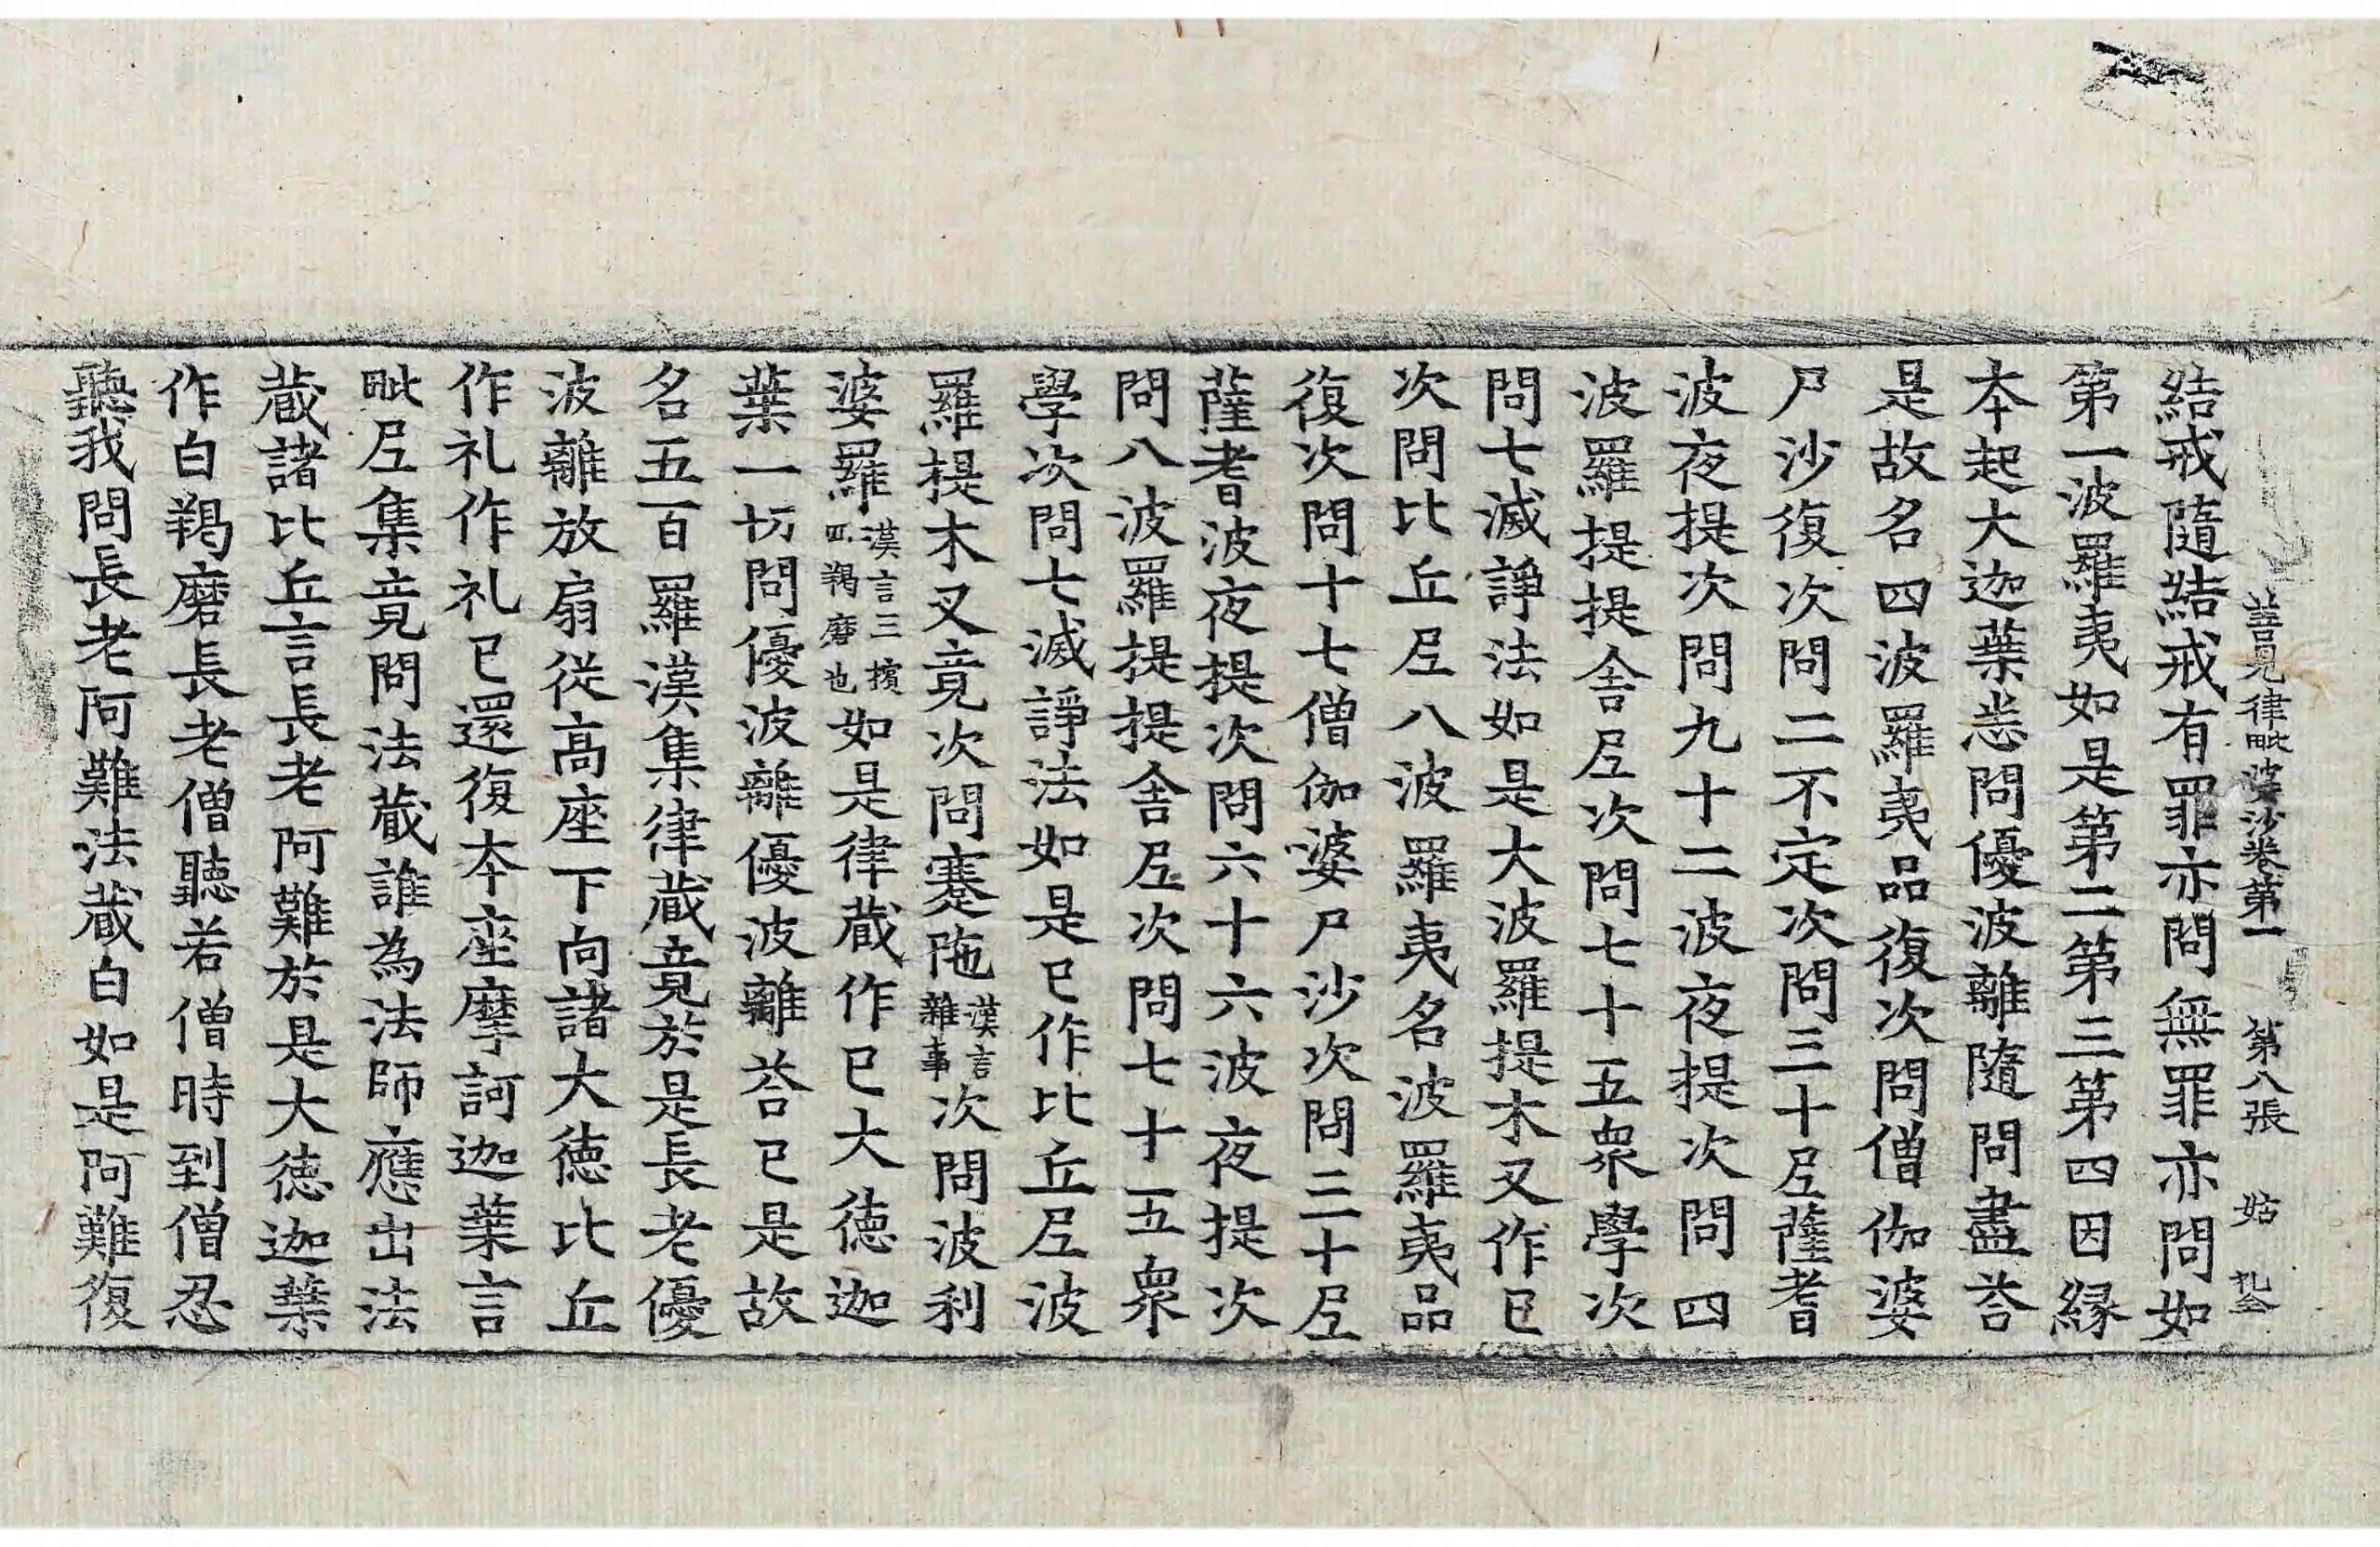 善見律毗婆沙卷第一 第八張 姑
結戒隨結戒有罪亦問無罪亦問如
第一波羅夷如是第二第三第四因縁
本起大迦葉悉問優波離隨問盡荅
是故名四波羅夷品復次問僧伽婆
尸沙復次問二不定次問三十𡰱薩耆
波夜提次問九十二波夜提次問四
波羅提提舎𡰱次問七十五衆學次
問七滅諍法如是大波羅提木叉作已
次問比丘𡰱八波羅夷名波羅夷品
復次問十七僧伽婆尸沙次問三十𡰱
薩耆波夜提次問六十六波夜提次
問八波羅提提舎𡰱次問七十五衆
學次問七滅諍法如是已作比丘𡰱波
羅提木叉竟次問蹇陁漢言雜事次問波利
婆羅漢言三擯四羯磨也如是律蔵作已大徳迦
葉一切問優波離優波離荅已是故
名五百羅漢集律蔵竟於是長老優
波離放扇從高座下向諸大徳比丘
作礼作礼已還復本座摩訶迦葉言
毗𡰱集竟問法蔵誰為法師應出法
蔵諸比丘言長老阿難於是大徳迦葉
作白羯磨長老僧聽若僧時到僧忍
聽我問長老阿難法蔵白如是阿難復